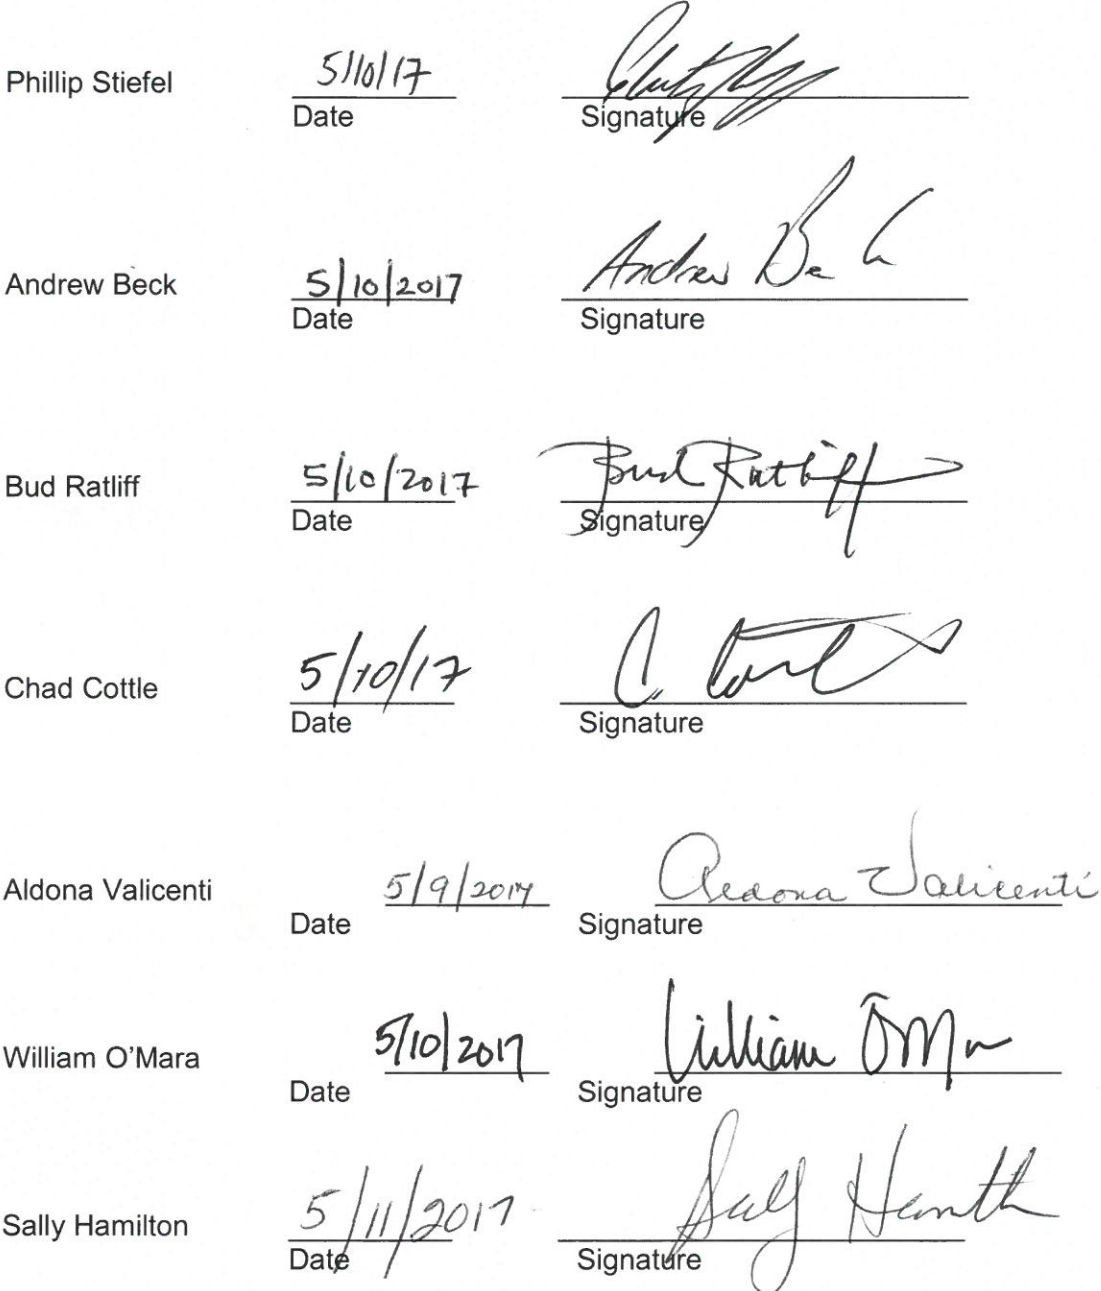 Phillip Stiefel 5/10/17
Date Signature
Andrew Beck 5/10/2017 Andrew Be
Date Signature
Bud Ratliff 5/10/2017 Bud Ratliff
Date Signature
Chad Cottle 5/10/17 C.
Date Signature
Aldona Valicenti 5/9/2017 Aldona Valicenti
Date Signature
William O'Mara 5/10/2017 William O'M
Date Signature
Sally Hamilton 5/11/2017 Sally
Date Signature